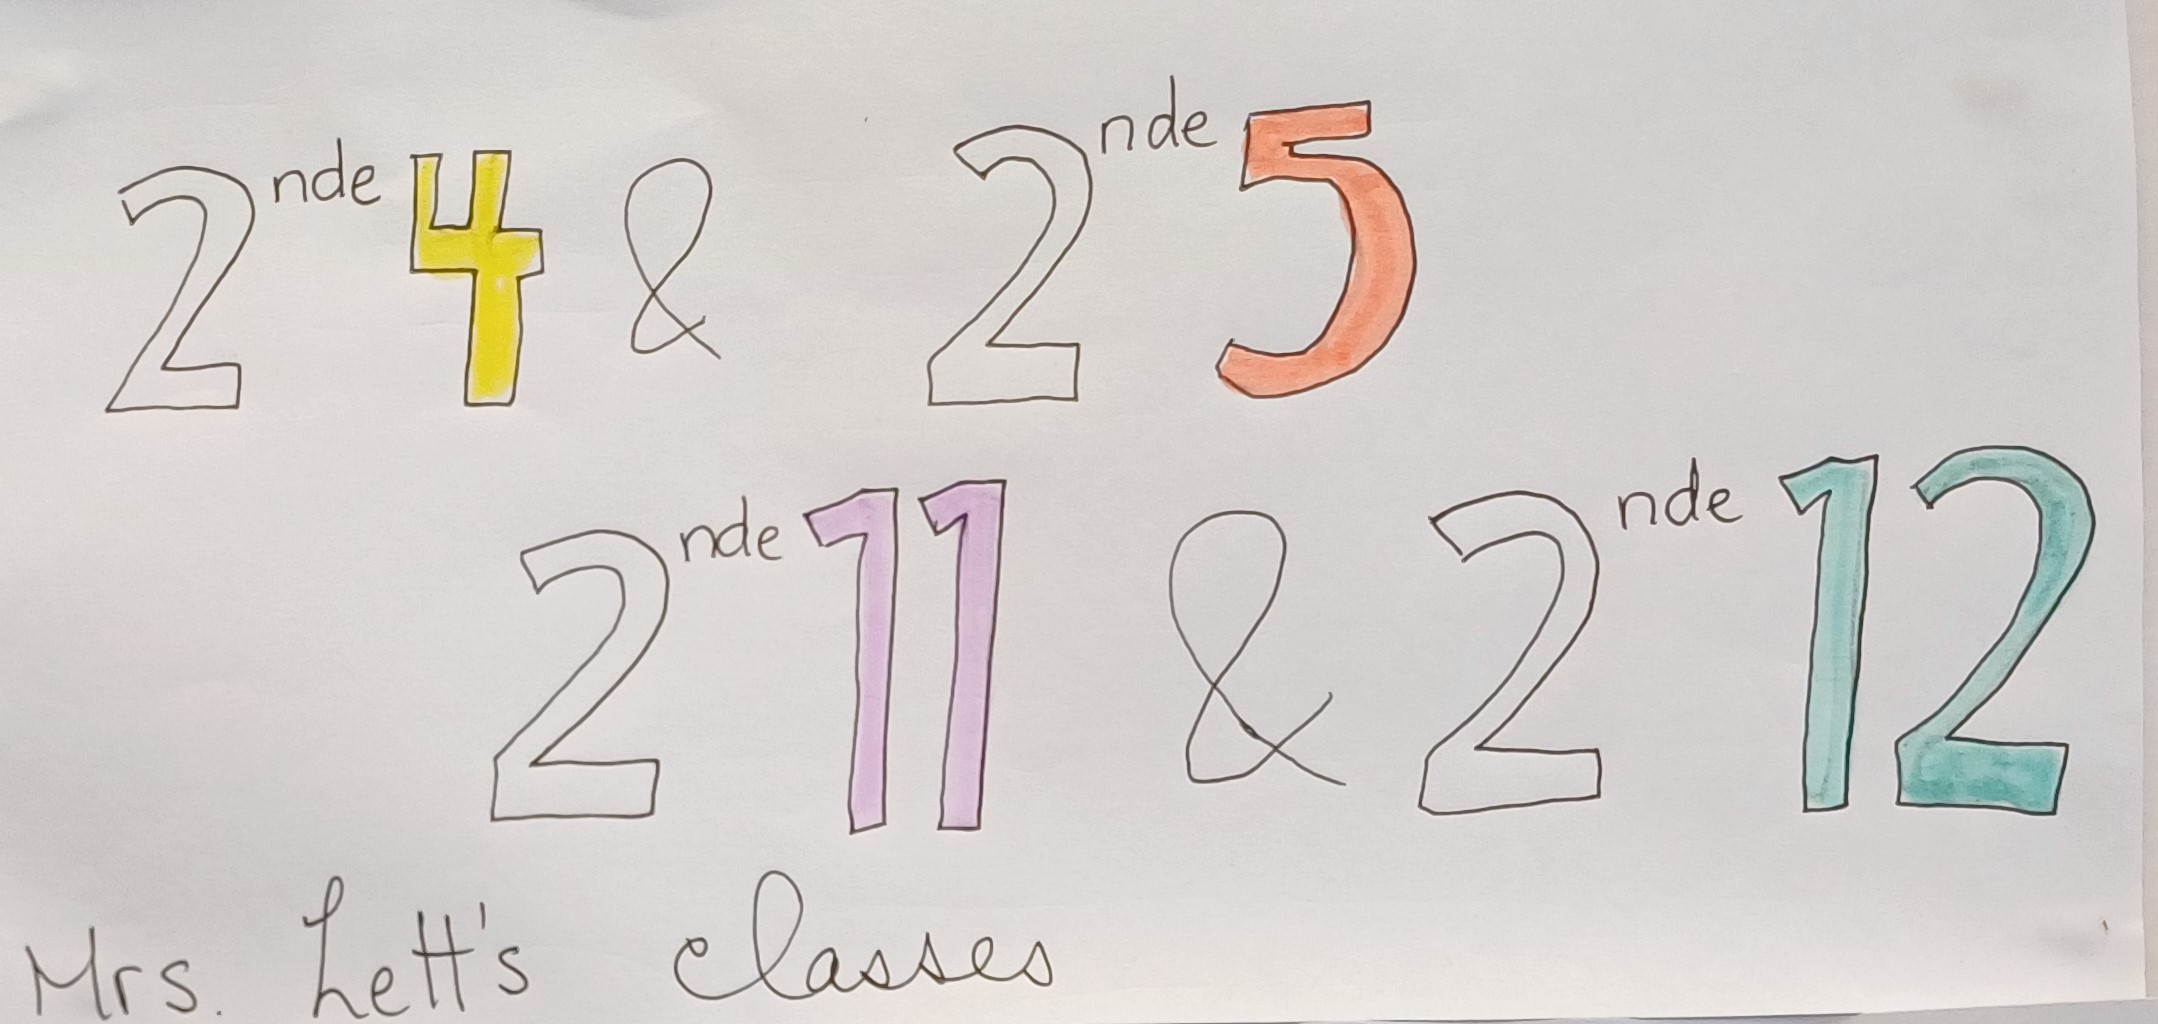 2nde 4 & 2nde 5
2nde 11 & 2nde 12
Mrs. Lett's classes